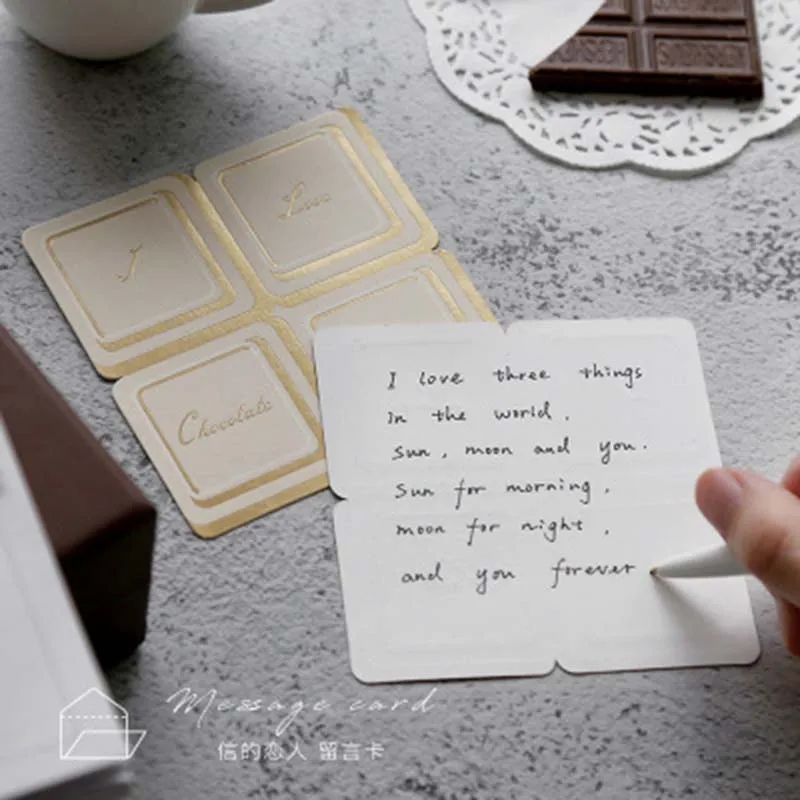 I
Love
Chocolate
I love three things
in the world.
Sun, moon and you.
Sun for morning,
moon for night,
and you forever
Message card
信的恋人 留言卡